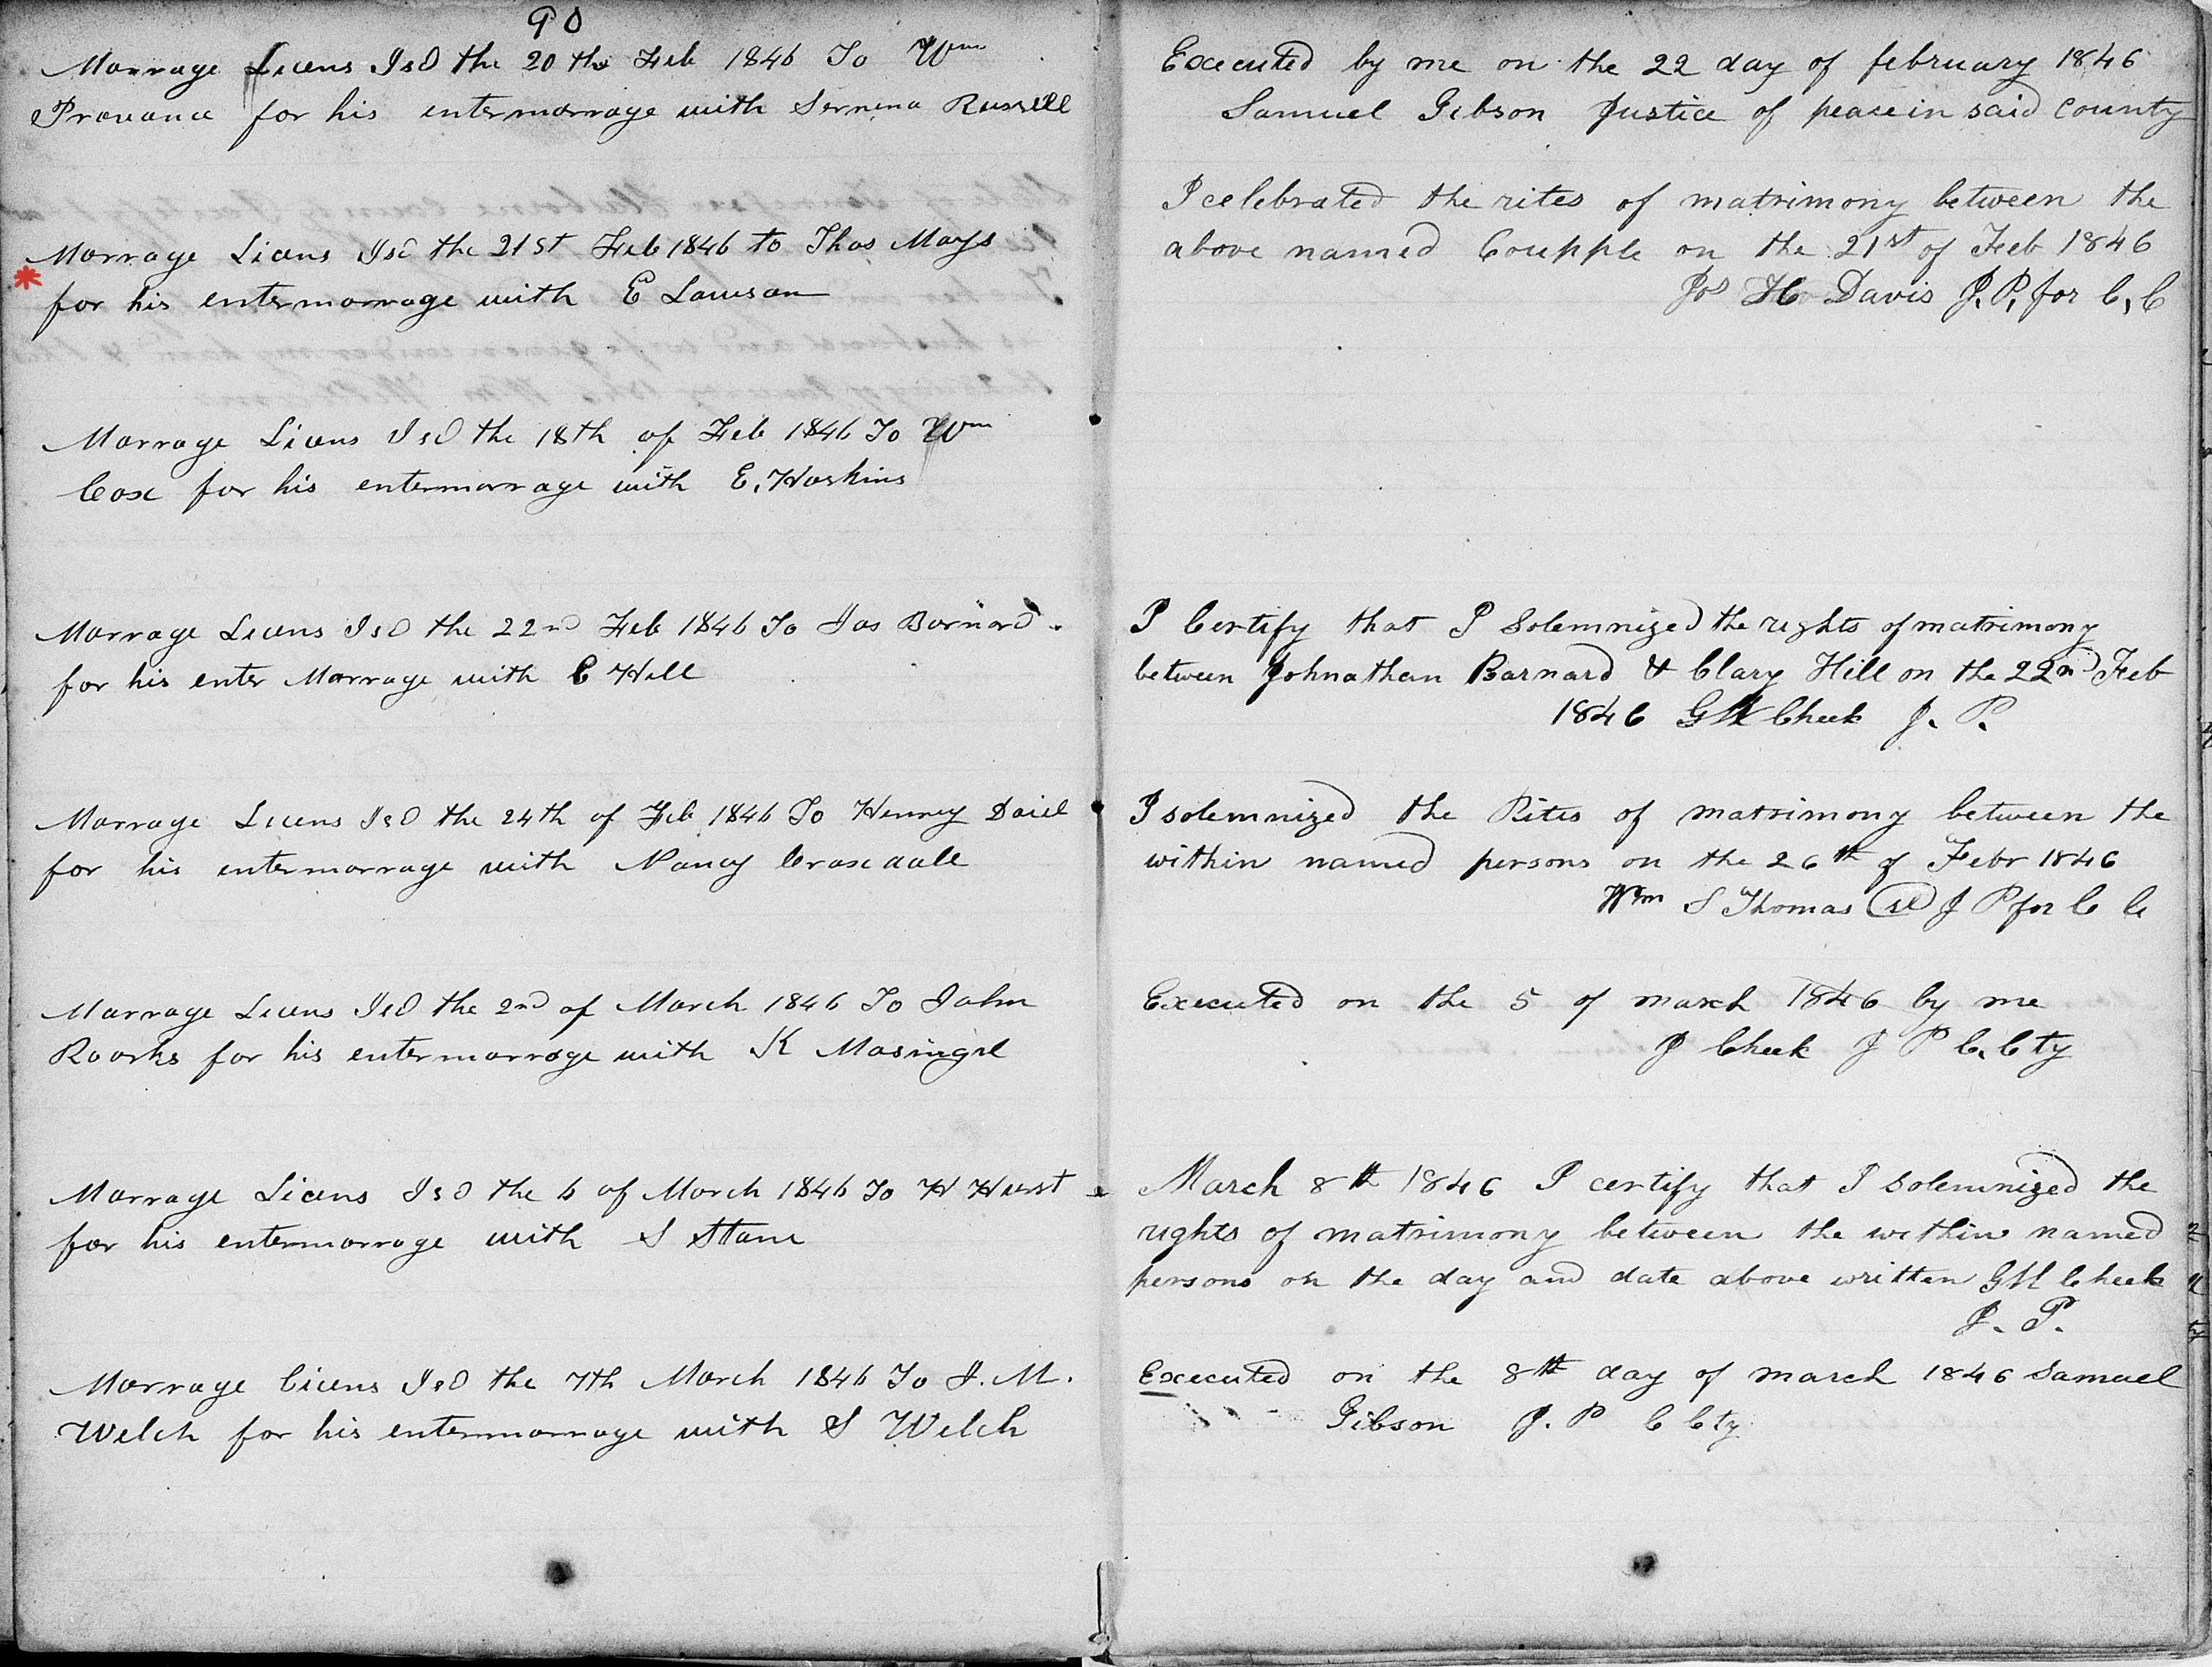 90
Marrage Licens Isd the 20 th Feb 1846 To Wm
Provance for his entermarrage with Serrena Russell
Executed by me on the 22 day of february 1846
Samuel Gibson Justice of peace in said county
Marrage Licens Isd the 21st Feb 1846 to Thos Mays
for his entermarrage with E Lawson
I celebrated the rites of matrimony between the
above named Coupple on the 21st of Feb 1846
Jos H Davis J. P. for C. C
Marrage Licens Isd the 18th of Feb 1846 To Wm
Cox for his entermarrage with E. Hoskins
Marrage Licens Isd the 22nd Feb 1846 To Jas Barnard
for his enter Marrage with C Hill
I Certify that I Solemnized the rights of matrimony
between Johnathan Barnard & Clary Hill on the 22nd Feb
1846 GH Cheek J. P.
Marrage Licens Isd the 24th of Feb 1846 To Henney
for his entermarrage with Nancy
I solemnized the Rites of matrimony between the
within named persons on the 26th of Febr 1846
Wm S Thomas J P for C C
Marrage Licens Isd the 2nd of March 1846 To John
Roarks for his entermarrage with K Masingil
Executed on the 5 of march 1846 by me
J Cheek J P C. Cty
Marrage Licens Isd the 6 of March 1846 To H Hurst
for his entermarrage with S Stone
March 8th 1846 I certify that I Solemnized the
rights of matrimony between the within named
persons on the day and date above written GH Cheek
J. P.
Marrage Licens Isd the 7th March 1846 To J. M.
Welch for his entermarrage with S Welch
Executed on the 8th day of march 1846 Samuel
Gibson J. P C Cty